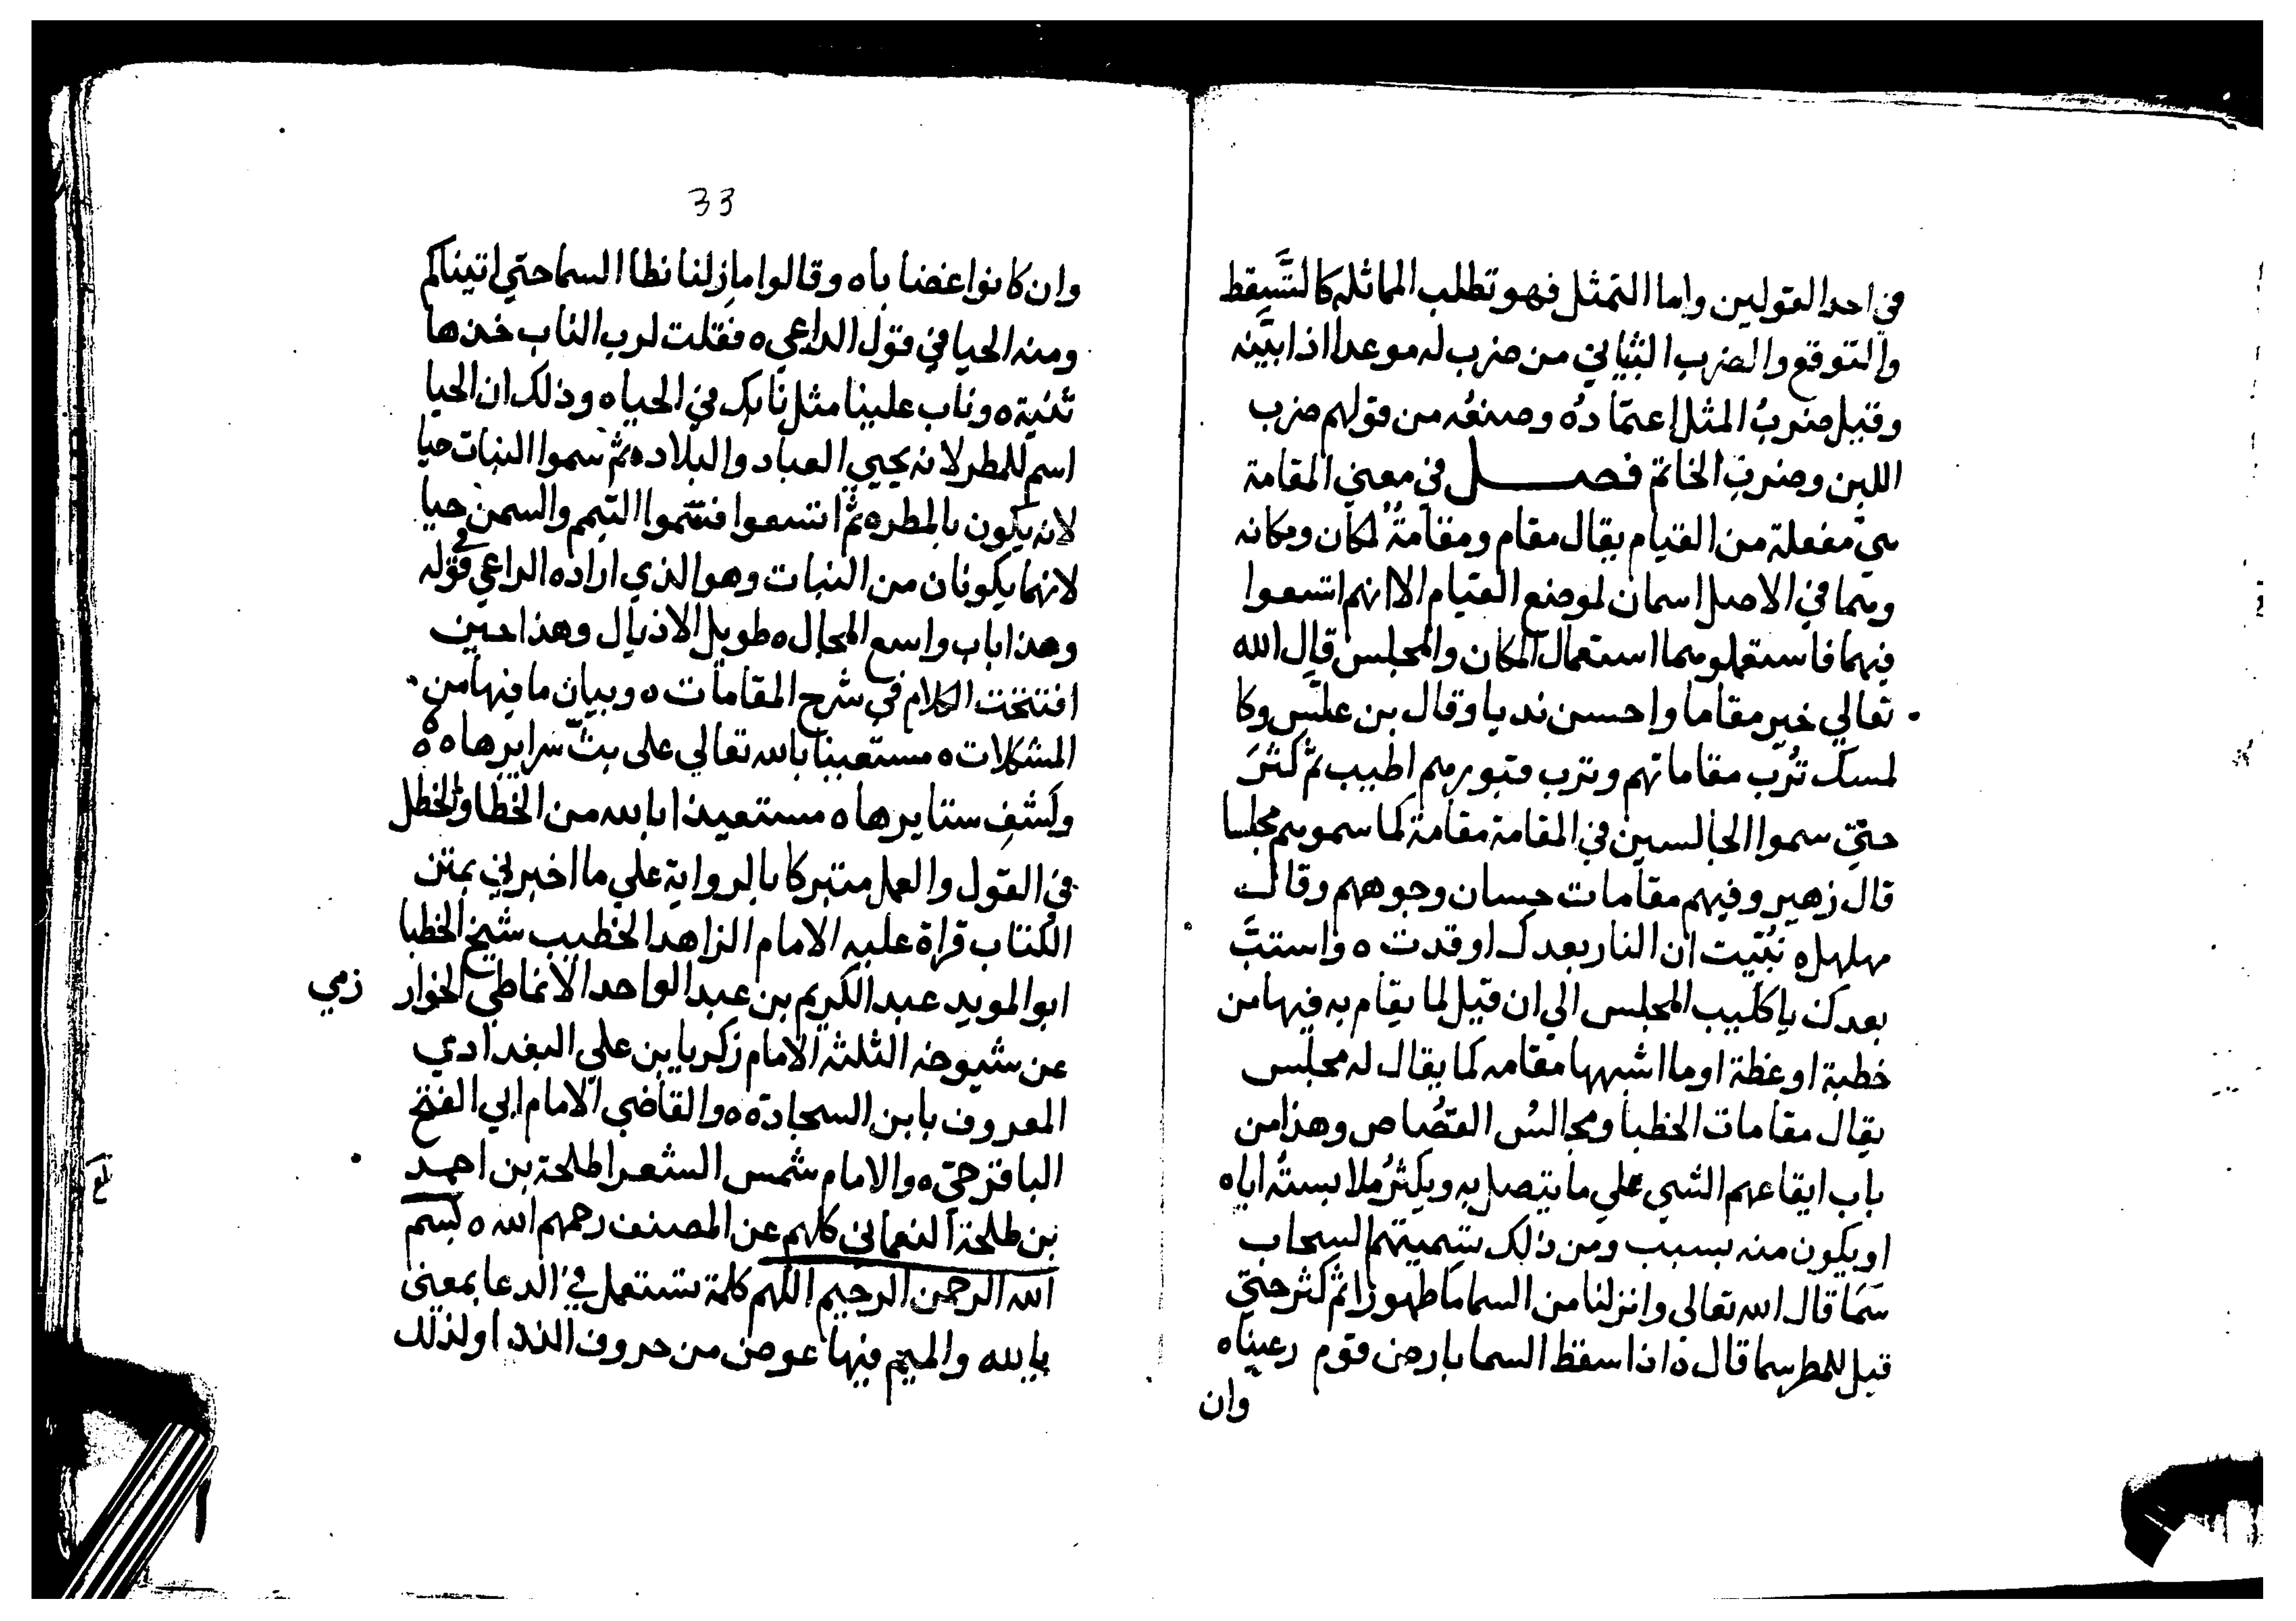 في احد القولين واما التمثل فهو تطلب المماثله كالتَّسقط
والتوقع والضرب الثاني من ضرب له موعدا اذا بيَّنه
وقيل ضربُ المثل اعتمادُه وصنعُه من قولهم ضرب
اللبن وضرب الخاتم فصل في معني المقامة
هي مفعلة من القيام يقال مقام ومقامةٌ لمكان ومكانه
وهما في الاصل اسمان لموضع القيام الا انهم اتسعوا
فيهما فاستعملوهما استعمال المكان والمجلس قال الله
تعالي خير مقاما واحسن نديا وقال بن علس وكا
لمسك تُرب مقاماتهم وترب قبورهم اطيب ثم كثرَ
حتي سموا الجالسين في المقامة مقامة كما سموهم مجلسا
قال زهير وفيهم مقامات حسان وجوههم وقال
مهلهل ه نُبّيت ان النار بعدك اوقدت ه واستبَّ
بعدك يا كليب المجلس الي ان قيل لما يقام به فيها من
خطبة او عظة او ما اشبهها مقامه كما يقال له مجلس
يقال مقامات الخطبا ومجالسُ القصَّاص وهذا من
باب ايقاعهم الشي علي ما يتصل به ويكثرُ ملابستُه اياه
او يكون منه بسبب ومن ذلك تسميتهم السحاب
سَمَا قال الله تعالي وانزلنا من السما ما طهورا ثم كثر حتي
قيل للمطر سما قال ه اذا سقط السما بارض قوم رعيناه
وان
33
وان كانوا غضابا ه وقالوا ما زلنا نطا السما حتي اتيناكم
ومنه الحيا في قول الراعي ه فقلت لرب الناب خذها
ثنية ه وناب علينا مثل نابك في الحيا ه وذلك ان الحيا
اسم للمطر لانه يحيي العباد والبلاد ه ثم سموا النبات حيا
لانه يكون بالمطر ه ثم اتسعوا فسموا الشحم والسمن حيا
لانهما يكونان من النبات وهو الذي اراده الراعي في قوله
وهذا باب واسع المجال ه طويل الاذيال وهذا حين
افتتحت الكلام في شرح المقامات ه وبيان ما فيها من
المشكلات ه مستعينا بالله تعالي على بثّ سرايرها ه ه
وكشفِ ستايرها ه مستعيذا بالله من الخطا والخطل
في القول والعمل متبركا بالرواية علي ما اخبرني بمتن
الكتاب قراة عليه الامام الزاهد الخطيب شيخ الخطبا
ابو المويد عبد الكريم بن عبد الواحد الانماطي الخوار زمي
عن شيوخه الثلثه الامام زكريا بن علي البغدادي
المعروف بابن السجادة ه والقاضي الامام ابي الفتح
البافرحي ه والامام شمس الشعرا طلحة بن احمد
بن طلحة النعماني كلهم عن المصنف رحمهم الله ه بسم
الله الرحمن الرحيم اللهم كلمة تستعمل في الدعا بمعنى
يا الله والميم فيها عوض من حروف الندا ولذلك